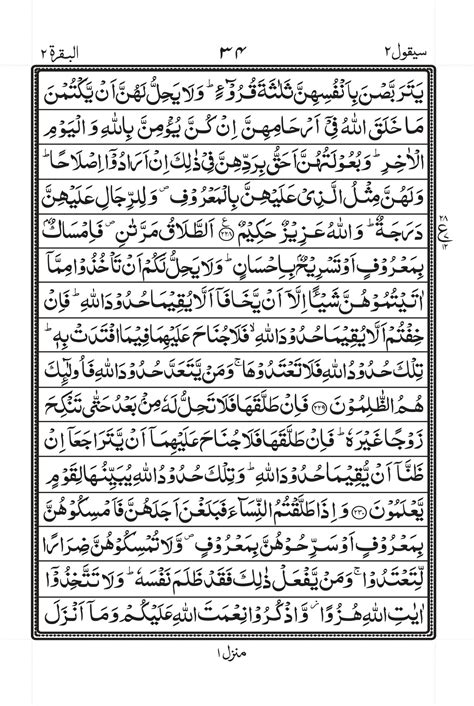 سيقول ٢ ٣٤ البقرة ٢
يَتَرَبَّصْنَ بِاَنْفُسِهِنَّ ثَلٰثَةَ قُرُوْٓءٍ ؕ وَلَا يَحِلُّ لَهُنَّ اَنْ يَّكْتُمْنَ
مَا خَلَقَ اللّٰهُ فِيْٓ اَرْحَامِهِنَّ اِنْ كُنَّ يُؤْمِنَّ بِاللّٰهِ وَ الْيَوْمِ
الْاٰخِرِ ؕ وَبُعُوْلَتُهُنَّ اَحَقُّ بِرَدِّهِنَّ فِيْ ذٰلِكَ اِنْ اَرَادُوْٓا اِصْلَاحًا ؕ
وَلَهُنَّ مِثْلُ الَّذِيْ عَلَيْهِنَّ بِالْمَعْرُوْفِ ۪ وَلِلرِّجَالِ عَلَيْهِنَّ
دَرَجَةٌ ؕ وَاللّٰهُ عَزِيْزٌ حَكِيْمٌ ﴿٢٢٨﴾ اَلطَّلَاقُ مَرَّتٰنِ ۪ فَاِمْسَاكٌۢ
بِمَعْرُوْفٍ اَوْ تَسْرِيْحٌۢ بِاِحْسَانٍ ؕ وَلَا يَحِلُّ لَكُمْ اَنْ تَاْخُذُوْا مِمَّآ
اٰتَيْتُمُوْهُنَّ شَيْـًٔا اِلَّآ اَنْ يَّخَافَآ اَلَّا يُقِيْمَا حُدُوْدَ اللّٰهِ ؕ فَاِنْ
خِفْتُمْ اَلَّا يُقِيْمَا حُدُوْدَ اللّٰهِ ۙ فَلَا جُنَاحَ عَلَيْهِمَا فِيْمَا افْتَدَتْ بِهٖ ؕ
تِلْكَ حُدُوْدُ اللّٰهِ فَلَا تَعْتَدُوْهَا ۚ وَمَنْ يَّتَعَدَّ حُدُوْدَ اللّٰهِ فَاُولٰٓئِكَ
هُمُ الظّٰلِمُوْنَ ﴿٢٢٩﴾ فَاِنْ طَلَّقَهَا فَلَا تَحِلُّ لَهٗ مِنْۢ بَعْدُ حَتّٰى تَنْكِحَ
زَوْجًا غَيْرَهٗ ؕ فَاِنْ طَلَّقَهَا فَلَا جُنَاحَ عَلَيْهِمَآ اَنْ يَّتَرَاجَعَآ اِنْ
ظَنَّآ اَنْ يُّقِيْمَا حُدُوْدَ اللّٰهِ ؕ وَتِلْكَ حُدُوْدُ اللّٰهِ يُبَيِّنُهَا لِقَوْمٍ
يَّعْلَمُوْنَ ﴿٢٣٠﴾ وَاِذَا طَلَّقْتُمُ النِّسَآءَ فَبَلَغْنَ اَجَلَهُنَّ فَاَمْسِكُوْهُنَّ
بِمَعْرُوْفٍ اَوْ سَرِّحُوْهُنَّ بِمَعْرُوْفٍ ۪ وَّلَا تُمْسِكُوْهُنَّ ضِرَارًا
لِّتَعْتَدُوْا ۚ وَمَنْ يَّفْعَلْ ذٰلِكَ فَقَدْ ظَلَمَ نَفْسَهٗ ؕ وَلَا تَتَّخِذُوْٓا
اٰيٰتِ اللّٰهِ هُزُوًا ؗ وَّاذْكُرُوْا نِعْمَتَ اللّٰهِ عَلَيْكُمْ وَمَآ اَنْزَلَ
٢٨
ع
١٢
منزل ١